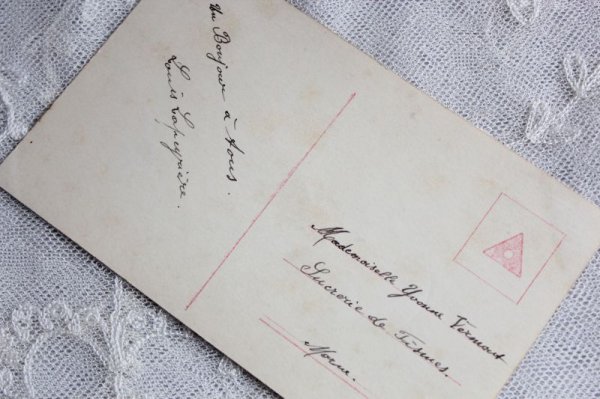 Un Bonjour à tous.
Louis Lapeyrière.
Mademoiselle Yvonne Vermont
Sucrerie de Fismes.
Marne.